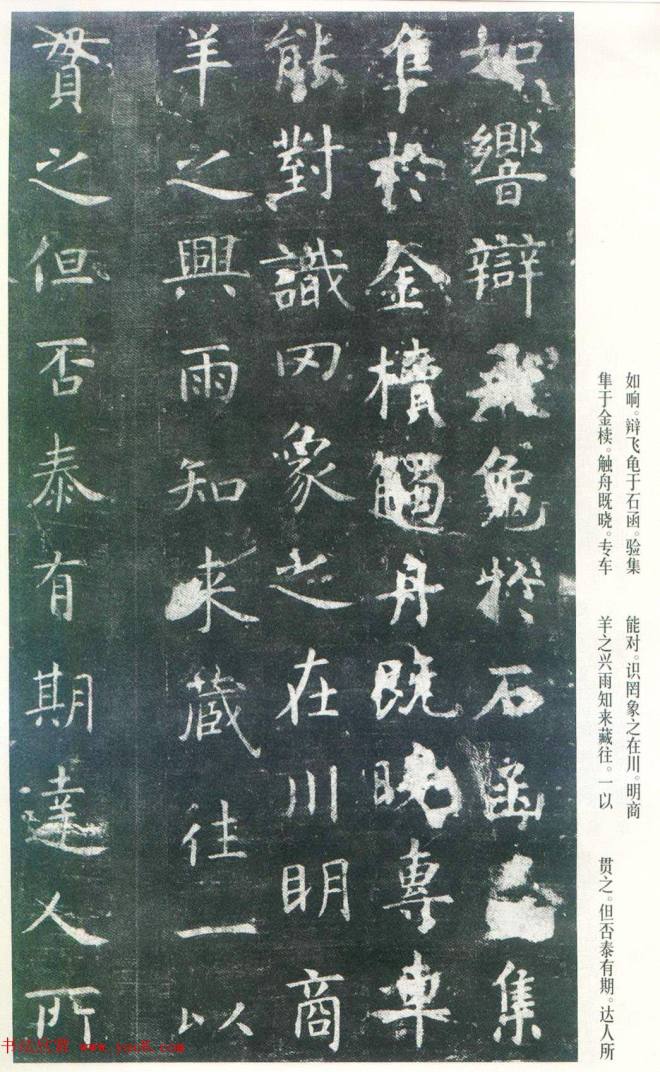 如响。辩飞龟于石函。验集
隼于金椟。触舟既晓。专车
能对。识罔象之在川。明商
羊之兴雨知来藏往。一以
贯之。但否泰有期。达人所
如響辯飛龜於石函集
隼於金櫝觸舟既曉專車
能對識罔象之在川明商
羊之興雨知来藏往一以
貫之但否泰有期達人所
书法欣赏